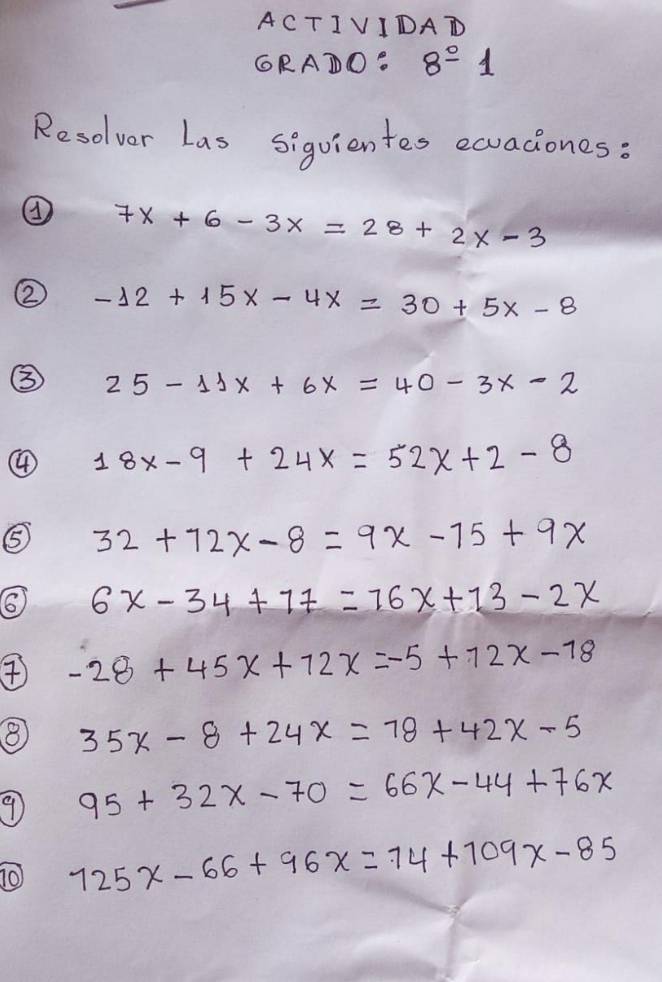 ACTIVIDAD
GRADO: 8º 1
Resolver Las siguientes ecuaciones:
① 7x + 6 - 3x = 28 + 2x - 3
② -12 + 15x - 4x = 30 + 5x - 8
③ 25 - 11x + 6x = 40 - 3x - 2
④ 18x - 9 + 24x = 52x + 2 - 8
⑤ 32 + 12x - 8 = 9x - 15 + 9x
⑥ 6x - 34 + 17 = 16x + 13 - 2x
⑦ -28 + 45x + 12x = -5 + 12x - 18
⑧ 35x - 8 + 24x = 18 + 42x - 5
⑨ 95 + 32x - 10 = 66x - 44 + 16x
⑩ 125x - 66 + 96x = 14 + 109x - 85